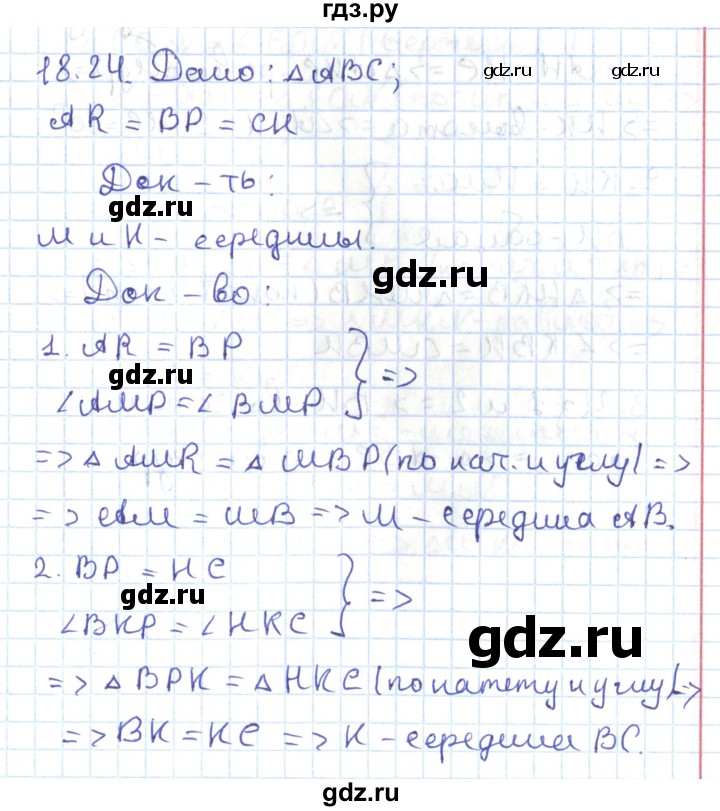 гдз.ру
18.24. Дано: △ABC;
gdz.ru gdz.ru
AR = BP = CH
Док-ть:
gdz.ru
M и K - середины.
gdz.ru
Док-во:
1. AR = BP
gdz.ru
∠AMP = ∠BMP } =>
=> △AMR = △MBP (по кат. и углу) =>
=> AM = MB => M - середина AB.
2. BP = HC
gdz.ru
∠BKP = ∠HKC } =>
gdz.ru
=> △BPK = △HKC (по катету и углу) =>
=> BK = KC => K - середина BC.
gdz.ru